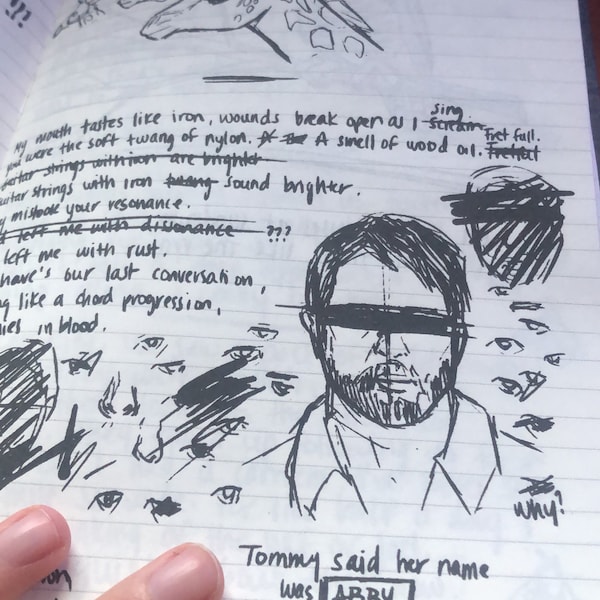 ??
sing
My mouth tastes like iron, wounds break open as I scream Fret full.
you were the soft twang of nylon. A smell of wood oil. Fretful
guitar strings with iron are brighter
guitar strings with iron twang sound brighter.
mistook your resonance.
left me with dissonance ???
left me with rust.
have's our last conversation,
like a chord progression,
in blood.
why?
Tommy said her name
was ABBY